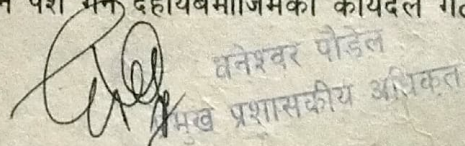 पेश गर्न देहायबमोजिमको कार्यदल
धनेश्वर पौडेल
प्रमुख प्रशासकीय अधिकृत